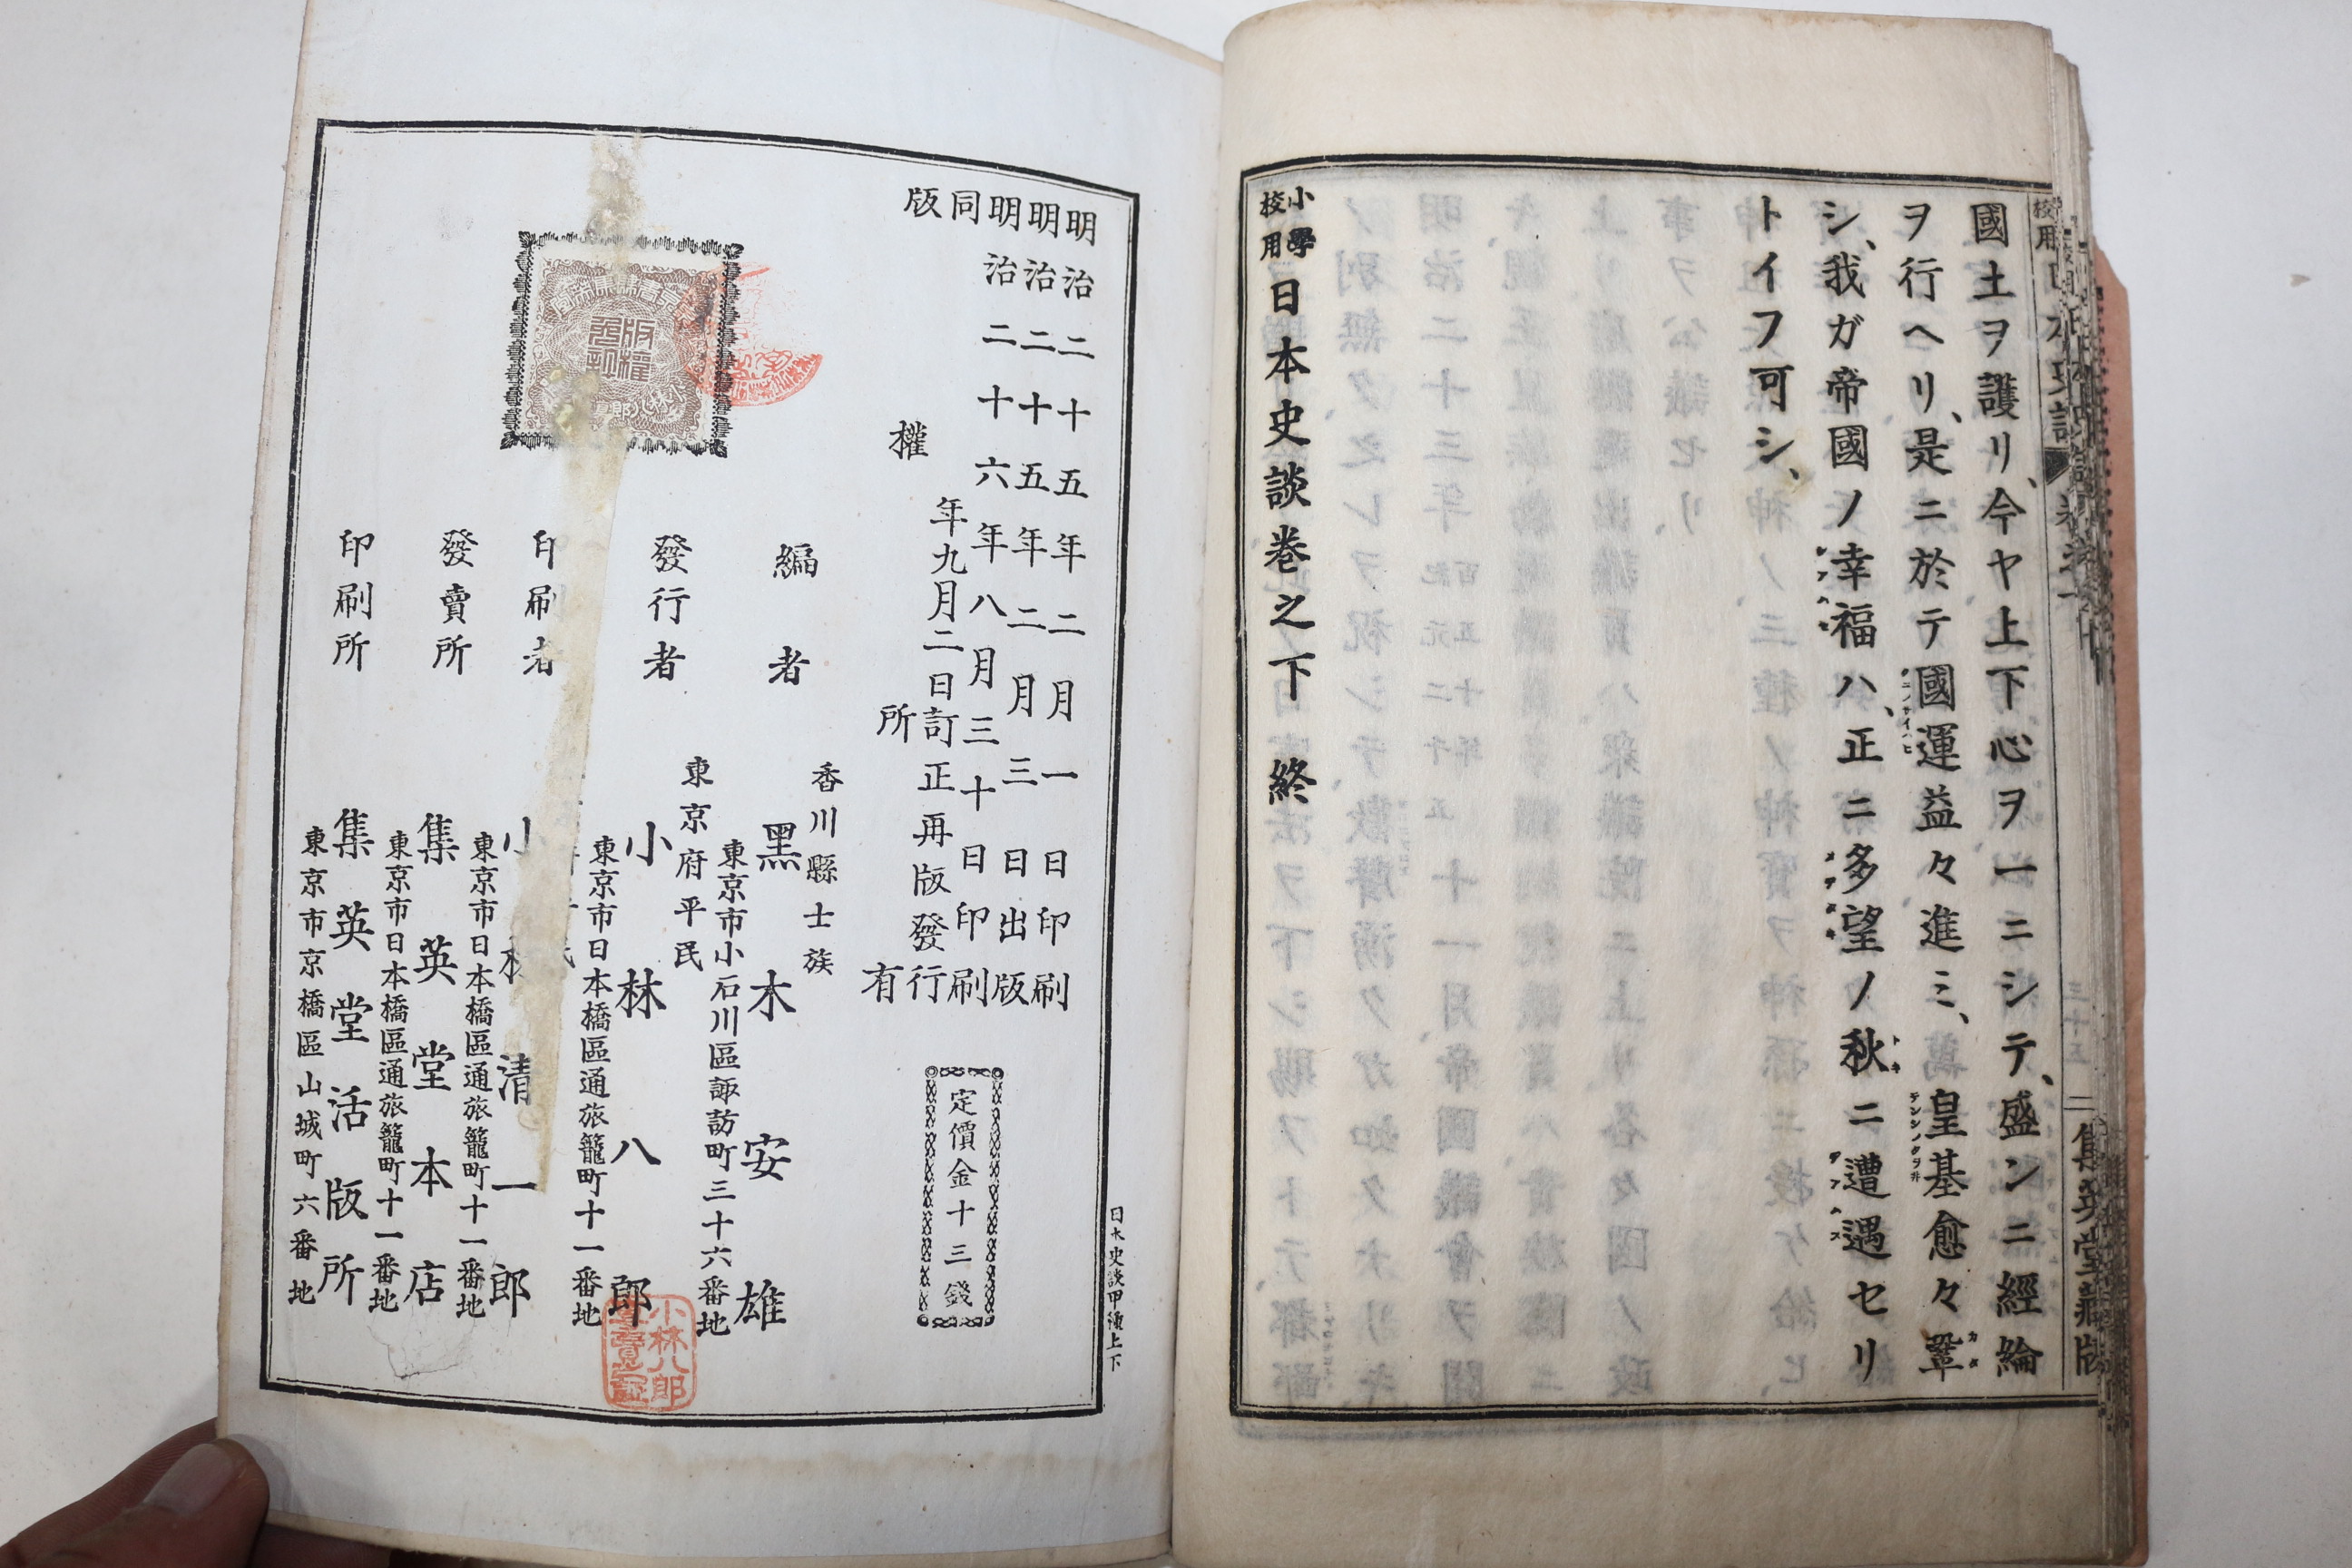 國土ヲ護リ、今ヤ上下心ヲ一ニシテ、盛ンニ經綸
ヲ行ヘリ、是ニ於テ國運益々進ミ、皇基愈々鞏
シ、我ガ帝國ノ幸福ハ、正ニ多望ノ秋ニ遭遇セリ
トイフ可シ、
小學校用日本史談卷之下 終
集英堂藏版
明治二十五年二月一日印刷
明治二十五年二月三日出版
明治二十六年八月三十日印刷
同年九月二日訂正再版發行
版權所有
定價金十三錢
香川縣士族
編者 黑木安雄
東京市小石川區諏訪町三十六番地
東京府平民
發行者 小林八郎
東京市日本橋區通旅籠町十一番地
印刷者 小林清一郎
東京市日本橋區通旅籠町十一番地
發賣所 集英堂本店
東京市日本橋區通旅籠町十一番地
印刷所 集英堂活版所
東京市京橋區山城町六番地
日本史談甲種上下
版權
小林八郎